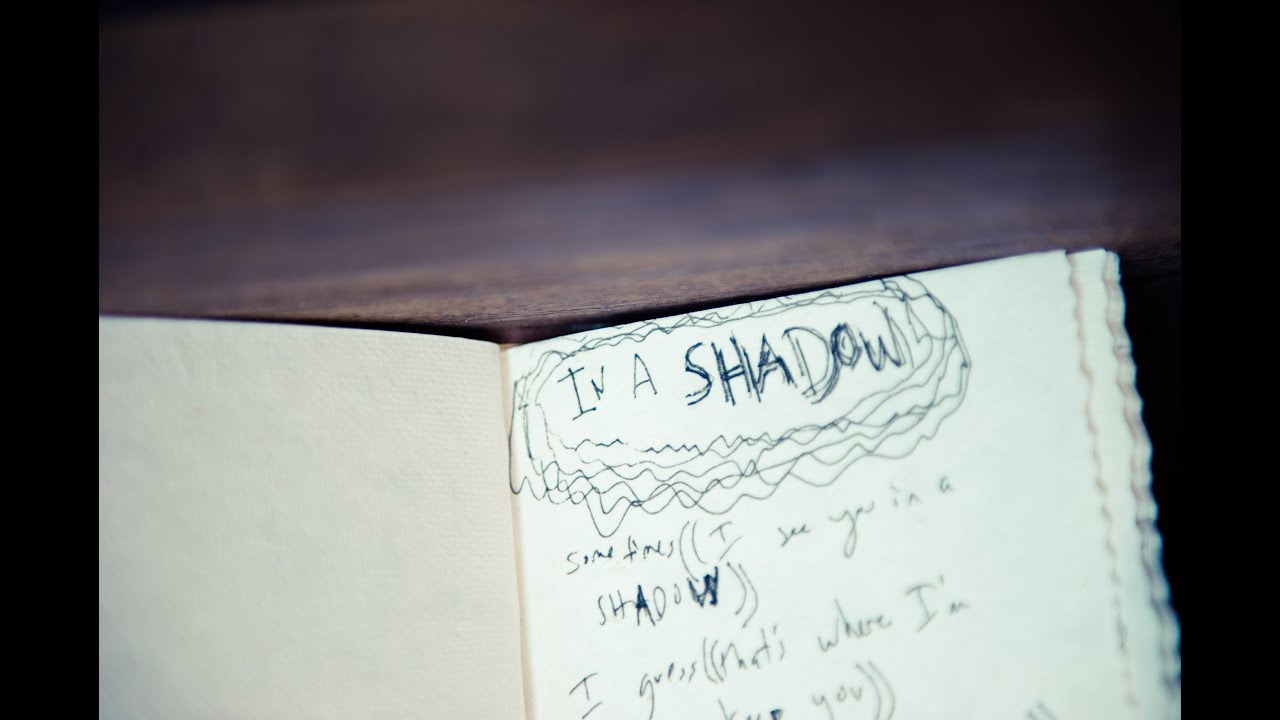 IN A SHADOW
sometimes((I see you in a
SHADOW))
I guess((that's where I'm
keep you))